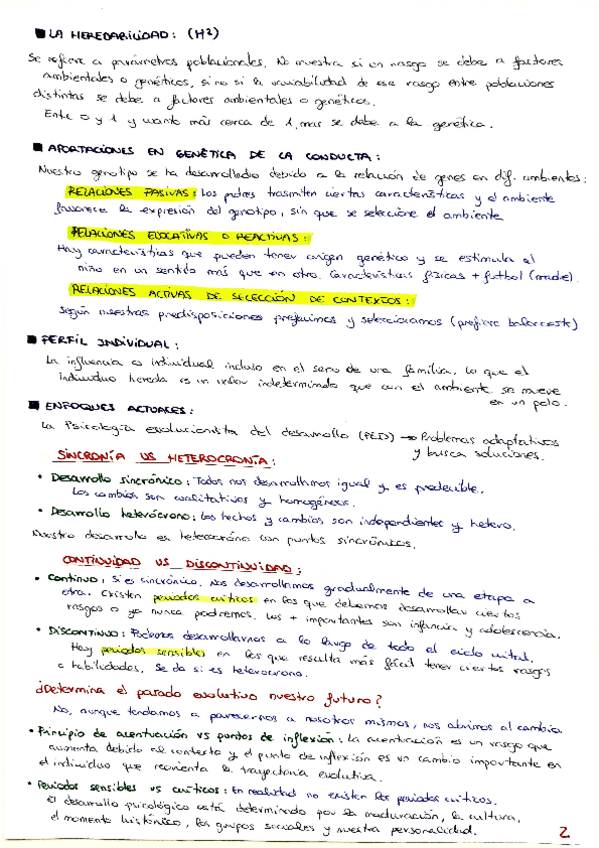 ■ LA HEREDABILIDAD: (H²)
Se refiere a parámetros poblacionales. No muestra si un rasgo se debe a factores
ambientales o genéticos, sino si la variabilidad de ese rasgo entre poblaciones
distintas se debe a factores ambientales o genéticos.
Entre 0 y 1 y cuanto más cerca de 1, mas se debe a la genética.
■ APORTACIONES EN GENÉTICA DE LA CONDUCTA:
Nuestro genotipo se ha desarrollado debido a la relación de genes en dif. ambientes:
RELACIONES PASIVAS: Los padres trasmiten ciertas características y el ambiente
favorece la expresión del genotipo, sin que se selecione el ambiente
RELACIONES EVOCATIVAS O REACTIVAS:
Hay características que pueden tener origen genético y se estimula al
niño en un sentido más que en otro. Características físicas + futbol (madre).
RELACIONES ACTIVAS DE SELECCIÓN DE CONTEXTOS:
Según nuestras predisposiciones preferimos y seleccionamos (prefiere baloncesto)
■ PERFIL INDIVIDUAL:
La influencia es individual incluso en el seno de una familia. Lo que el
individuo hereda es un valor indeterminado que con el ambiente se mueve
en un polo.
■ ENFOQUES ACTUALES:
La Psicología evolucionista del desarrollo (PED) → Problemas adaptativos
y busca soluciones.
SINCRONÍA VS HETEROCRONÍA:
• Desarrollo sincrónico: Todos nos desarrollamos igual y es predecible.
Los cambios son cualitativos y homogéneos.
• Desarrollo heterócrono: Los hechos y cambios son independientes y hetero.
Nuestro desarrollo es heterocróno con puntos sincrónicos.
CONTINUIDAD VS DISCONTINUIDAD:
• Continuo: Si es sincrónico. Nos desarrollamos gradualmente de una etapa a
otra. Existen periodos críticos en los que debemos desarrollar ciertos
rasgos o ya nunca podremos. Los + importantes son infancia y adolescencia.
• DISCONTINUO: Podemos desarrollarnos a lo largo de todo el ciclo vital.
Hay periodos sensibles en los que resulta más fácil tener ciertos rasgos
o habilidades. Se da si es heterocrono.
¿Determina el pasado evolutivo nuestro futuro?
No, aunque tendamos a parecernos a nosotros mismos, nos abrimos al cambio.
• Principio de acentuación vs puntos de inflexión: la acentuación es un rasgo que
aumenta debido al contexto y el punto de inflexión es un cambio importante en
el individuo que reorienta la trayectoria evolutiva.
• Periodos sensibles vs críticos: En realidad no existen los periodos críticos.
El desarrollo psicológico está determinado por la maduración, la cultura,
el momento histórico, los grupos sociales y nuestra personalidad.
2